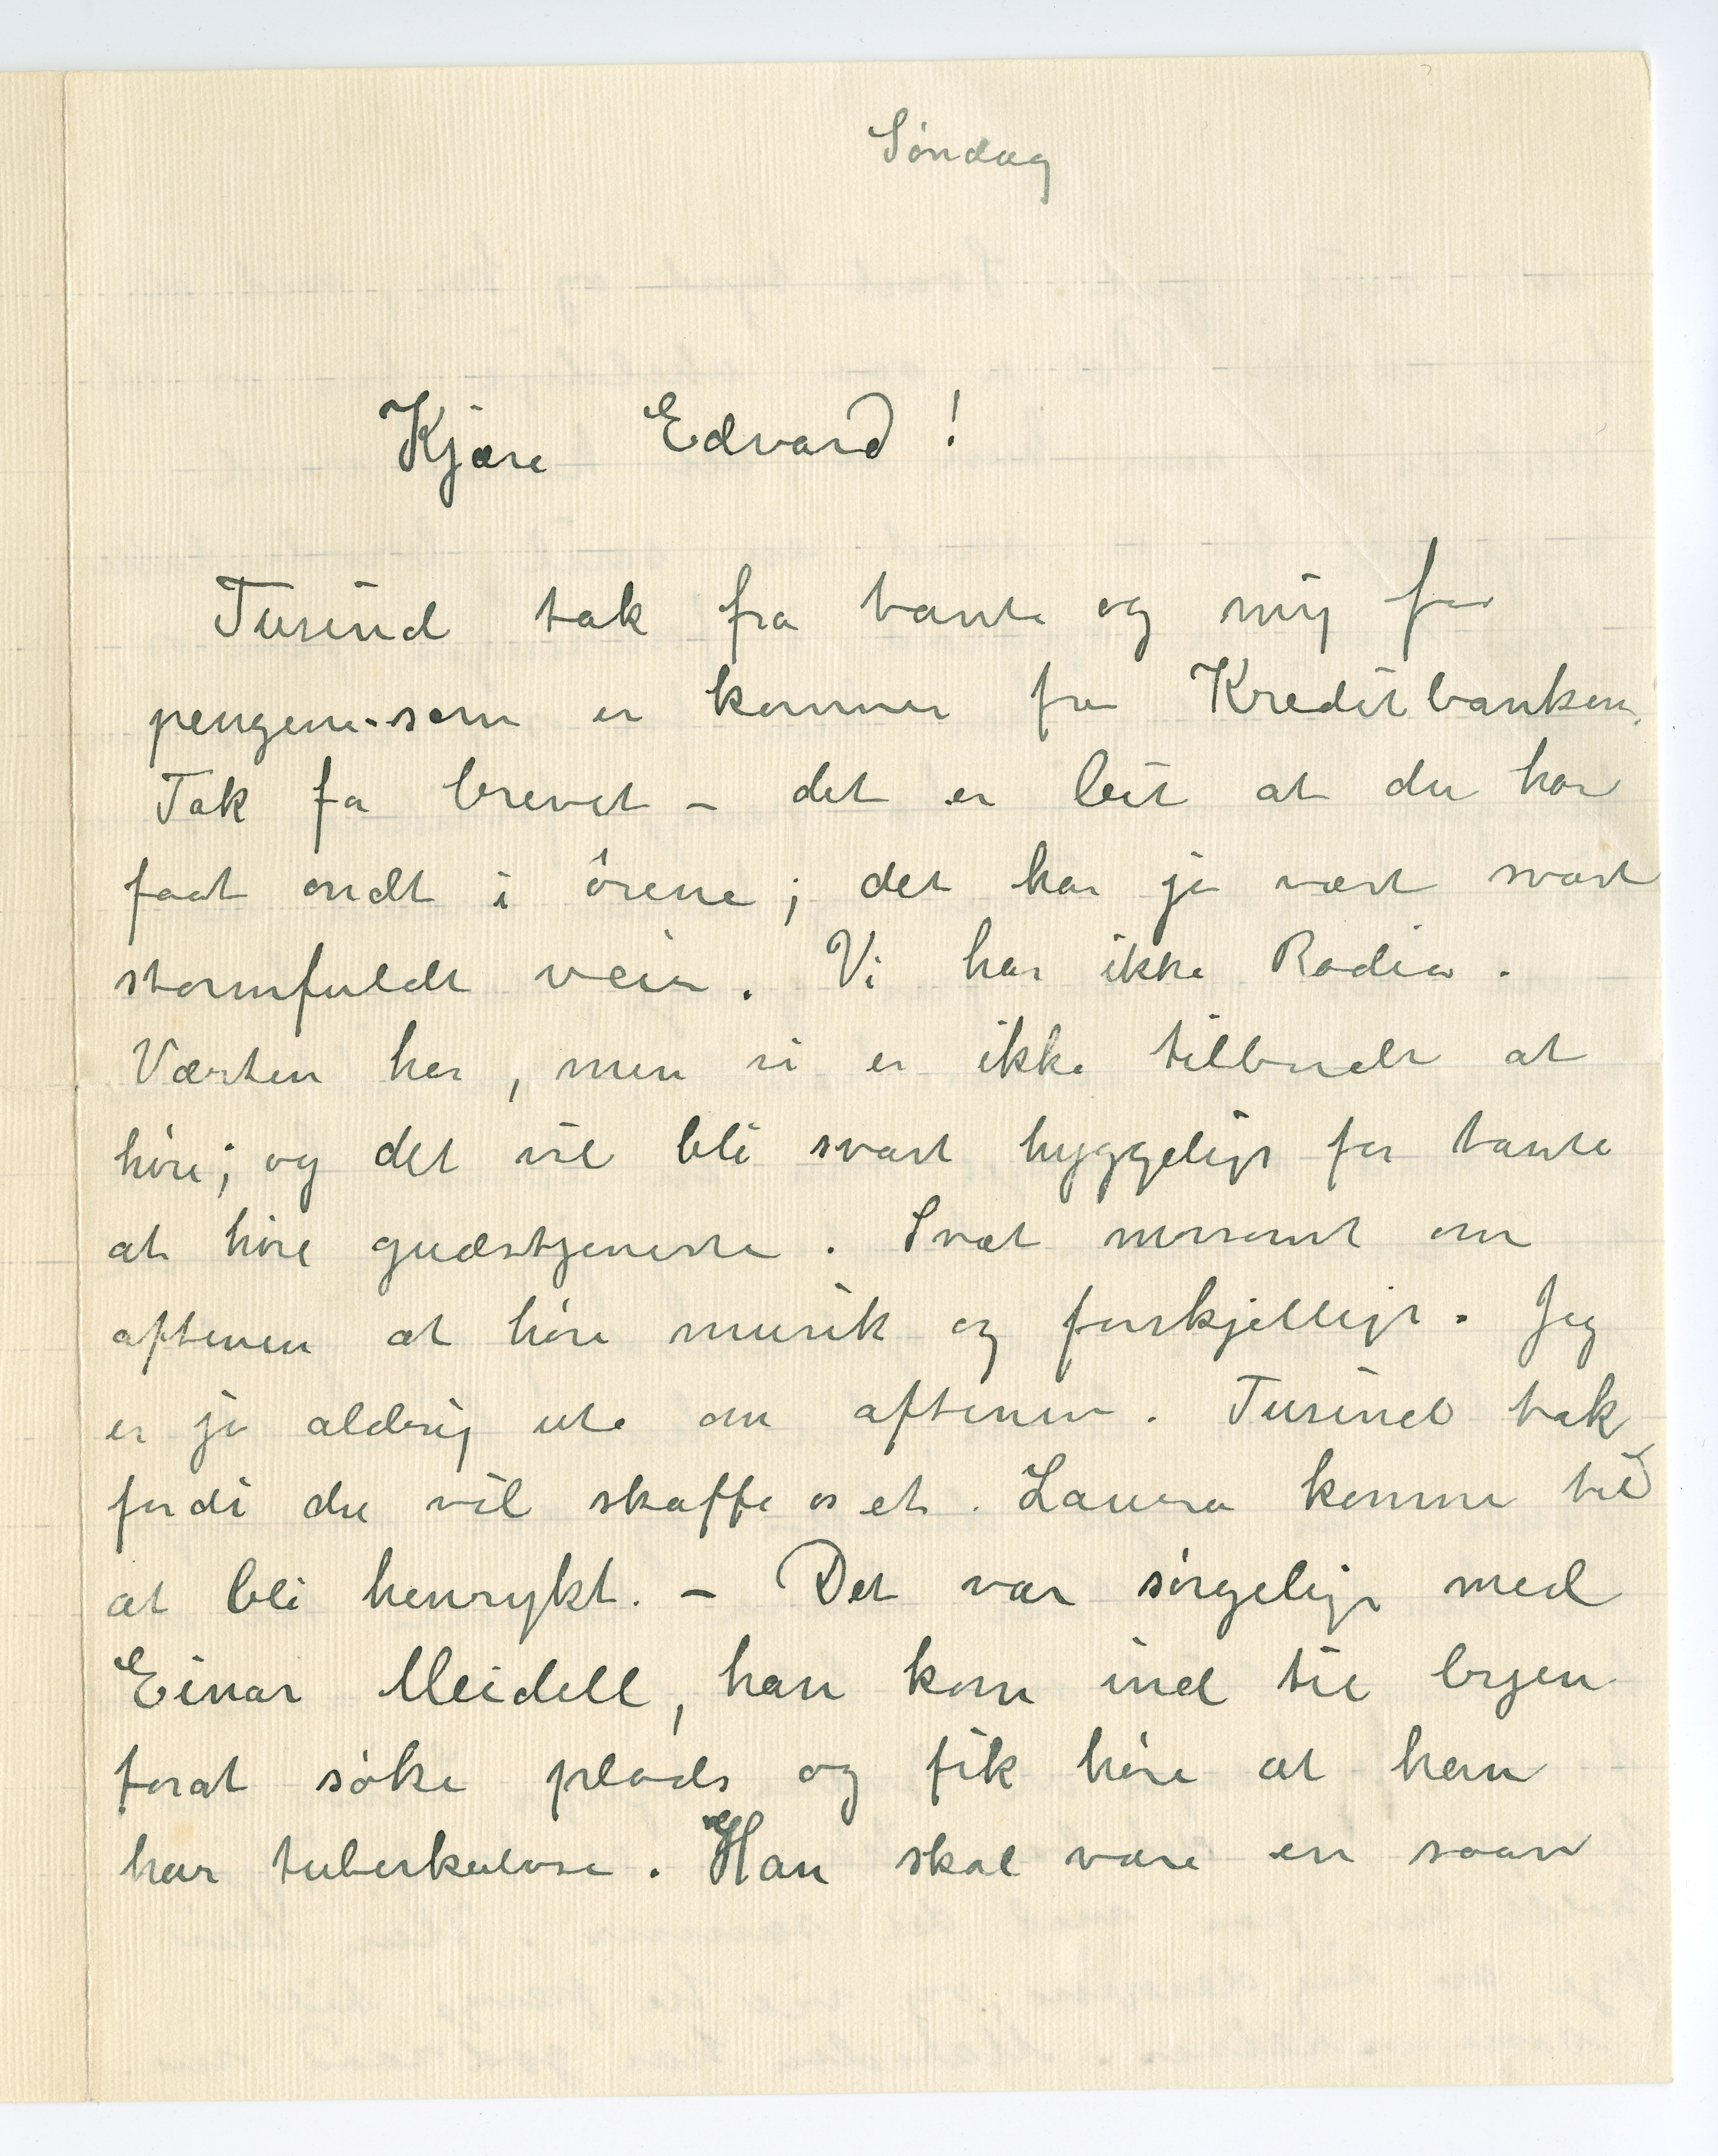 Söndag
Kjære Edvard!
Tusind tak fra tante og mig for
pengene som er kommet fra Kreditbanken.
Tak for brevet – det er leit at du har
faat ondt i örene; det har jo vært svært
stormfuldt veir. Vi har ikke Radio.
Værten har, men vi er ikke tilbudt at
höre; og det vil bli svært hyggeligt for tante
at höre gudstjeneste. Svæt morsomt om
aftenen at höre musik og forskjelligt. Jeg
er jo aldrig ute om aftenen. Tusind tak
fordi du vil skaffe os et. Laura kommer til
at bli henrykt. – Det var sörgeligt med
Einar Meidell, han kom ind til byen
forat söke plads og fik höre at han
har tuberkulose. Han skal være en saan